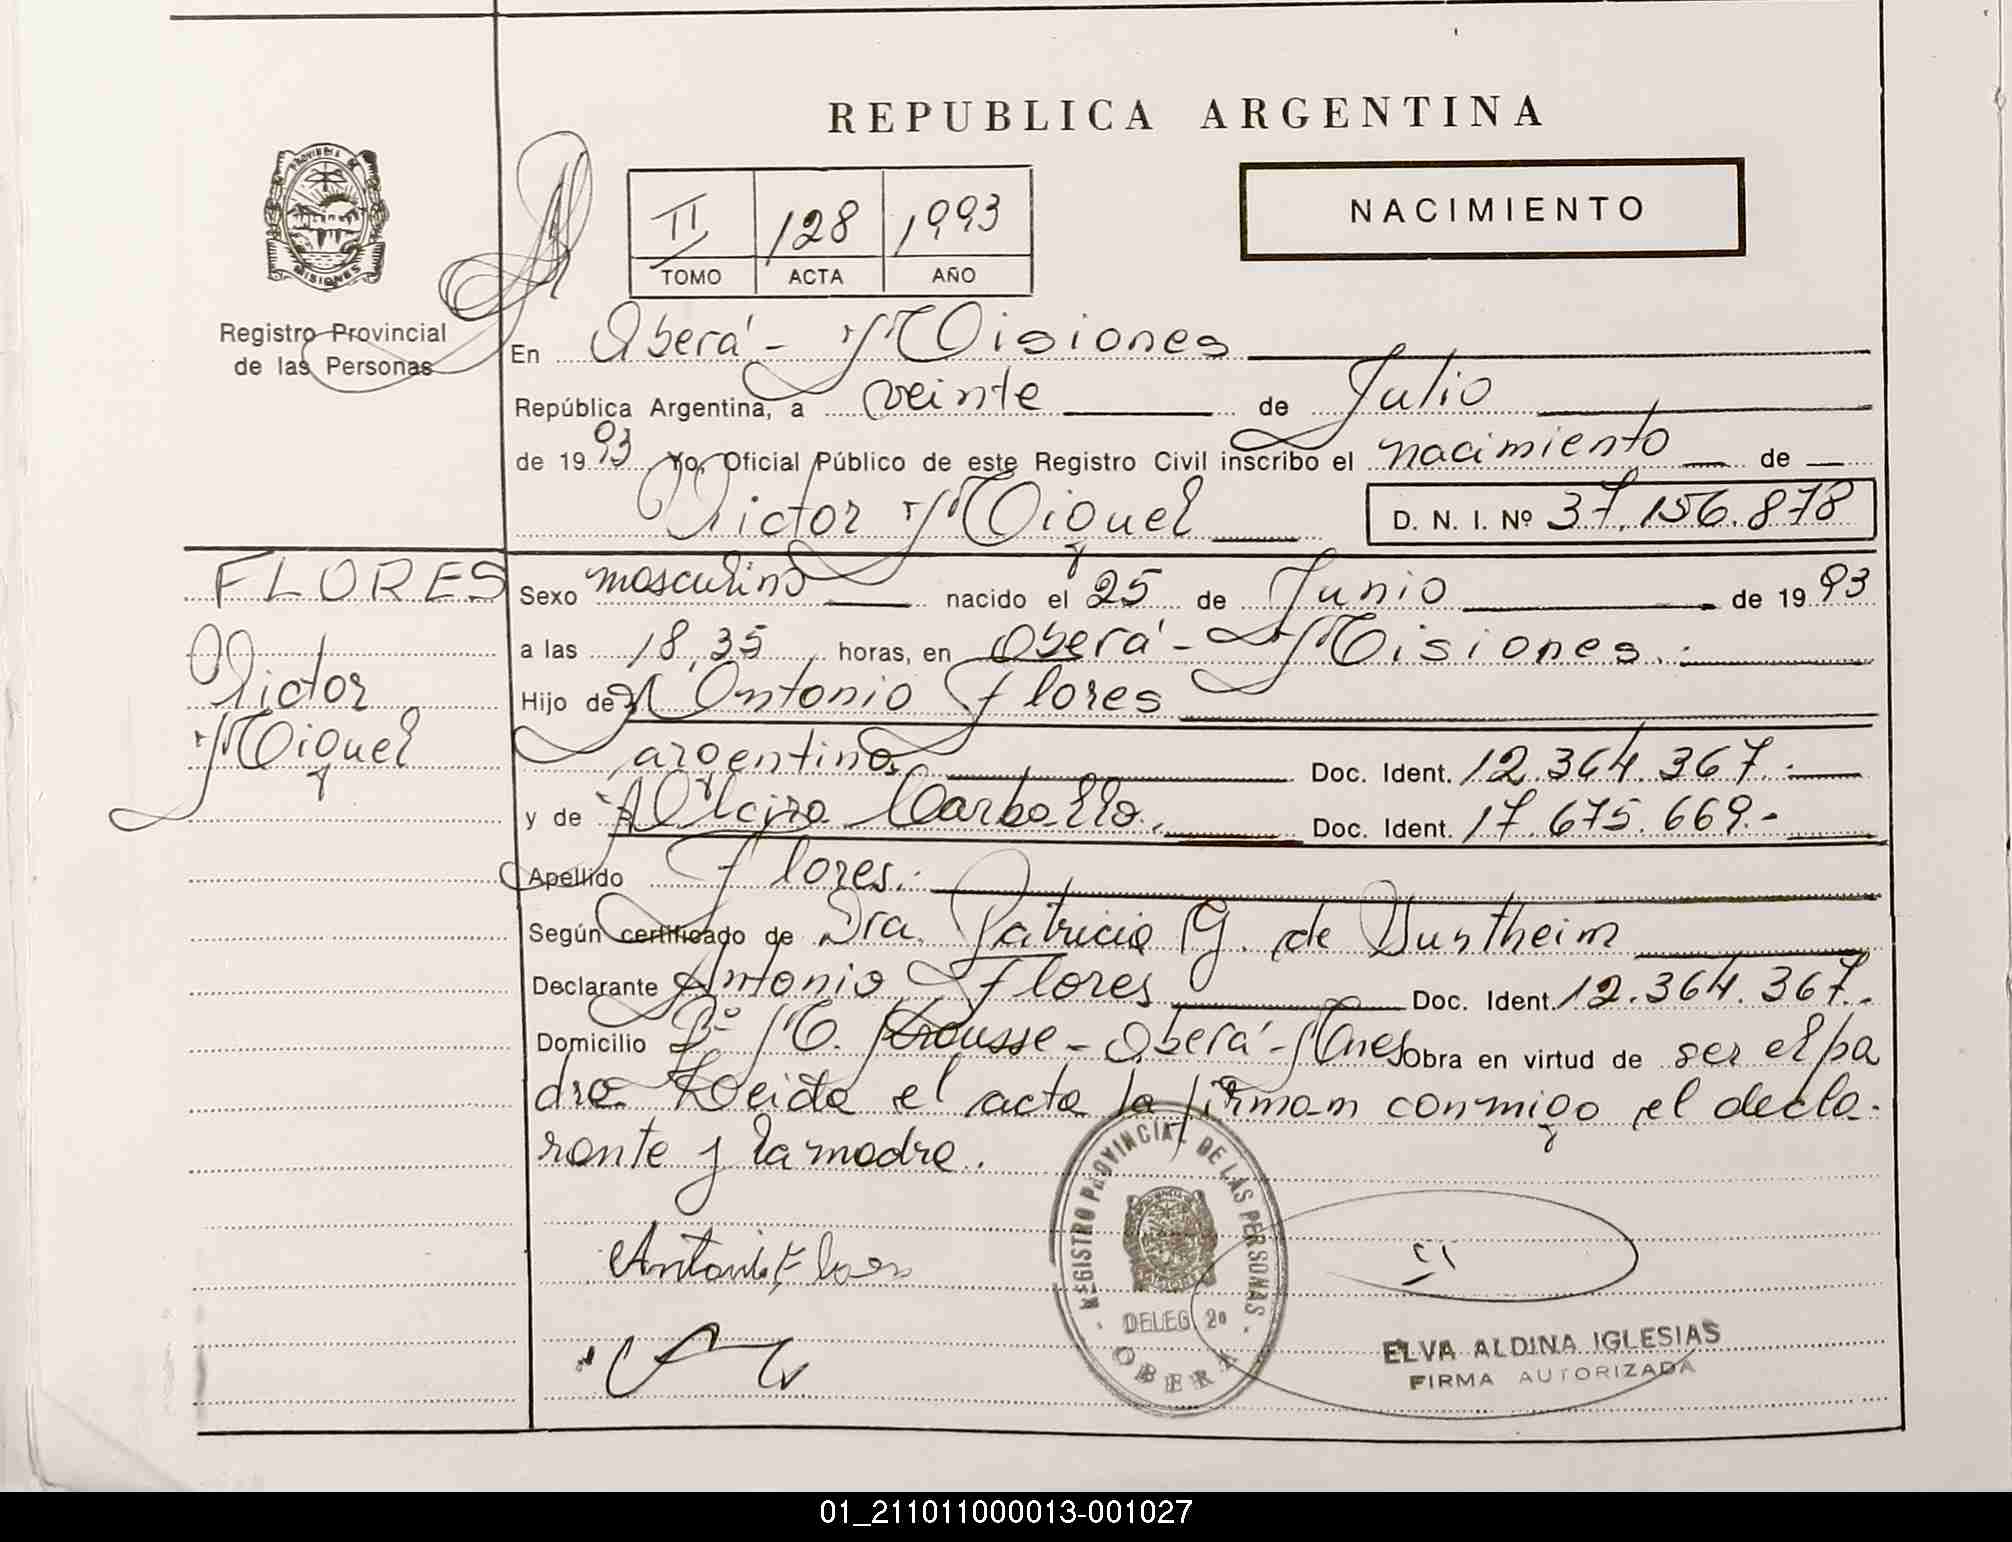 REPUBLICA ARGENTINA
PROVINCIA DE
MISIONES
Registro Provincial
de las Personas
II 128 1993
TOMO ACTA AÑO
NACIMIENTO
En Oberá - Misiones
República Argentina, a veinte de Julio
de 1993 Yo, Oficial Público de este Registro Civil inscribo el nacimiento de
Victor Miguel D. N. I. Nº 37.156.878
FLORES
Victor
Miguel
Sexo masculino nacido el 25 de Junio de 1993
a las 18,35 horas, en Oberá - Misiones.
Hijo de Antonio Flores
argentino Doc. Ident. 12.364.367.
y de Carballo. Doc. Ident. 17.675.669.-
Apellido Flores.
Según certificado de Dra. Patricia G. de
Declarante Antonio Flores Doc. Ident. 12.364.367.
Domicilio Bº M. - Oberá - Mnes Obra en virtud de ser el pa
dre. Leida el acta la firman conmigo el decla-
rante y la madre.
Antonio Flores
REGISTRO PROVINCIAL DE LAS PERSONAS
DELEG 2a
OBERA
ELVA ALDINA IGLESIAS
FIRMA AUTORIZADA
01_211011000013-001027